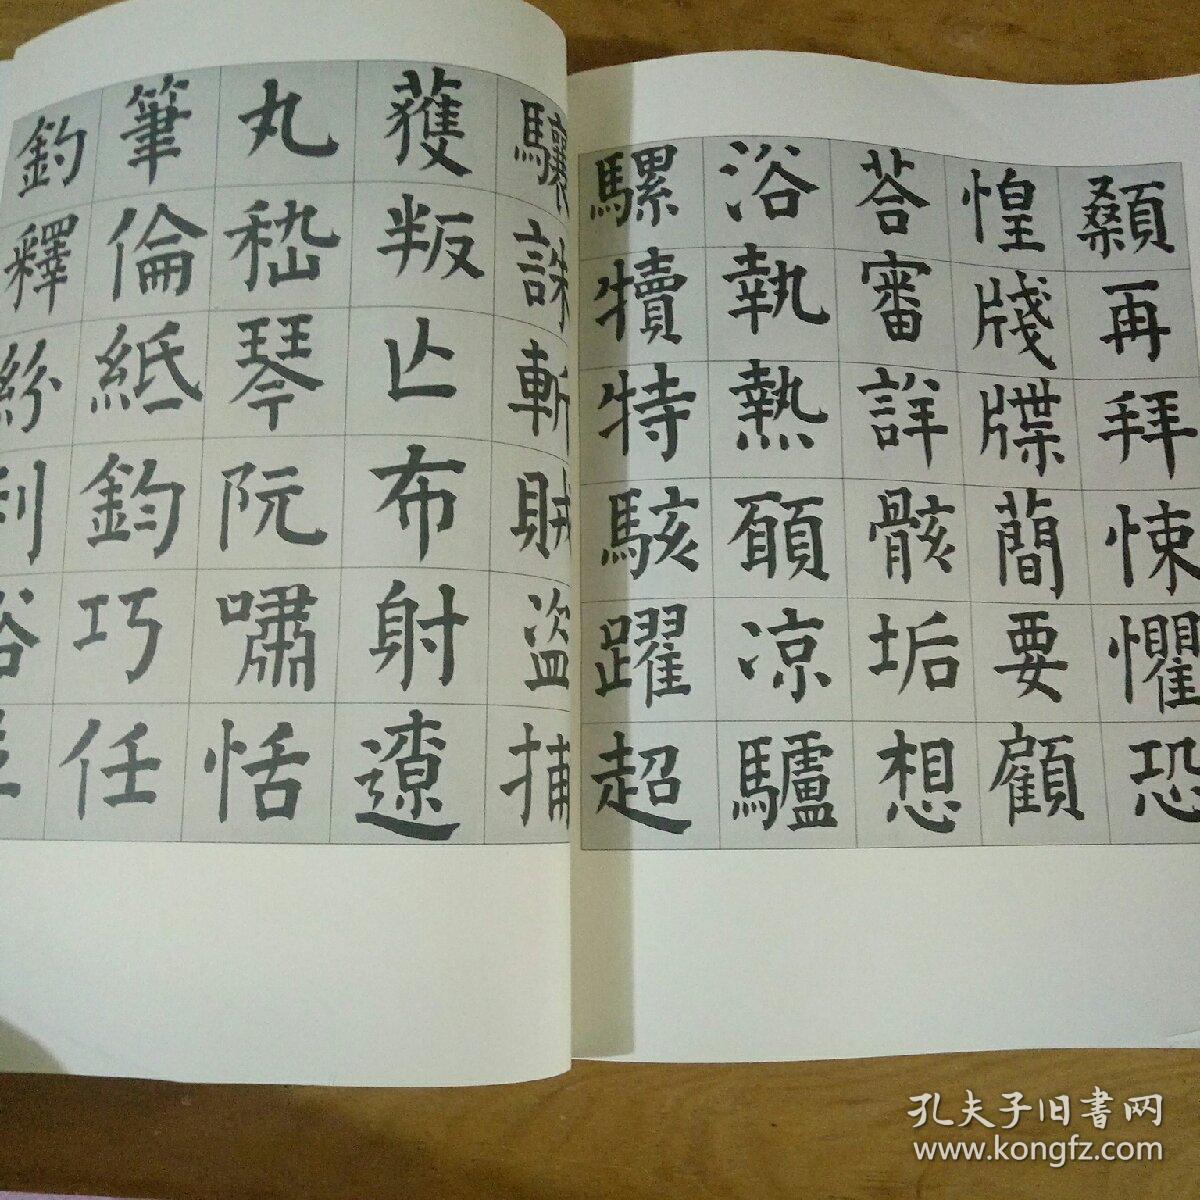 顙再拜悚懼恐
惶牋牒簡要顧
荅審詳骸垢想
浴執熱願凉驢
騾犢特駭躍超
驤誅斬賊盗捕
獲叛亾布射遼
丸嵇琴阮嘯恬
筆倫紙鈞巧任
釣釋紛利俗並
孔夫子旧书网
www.kongfz.com